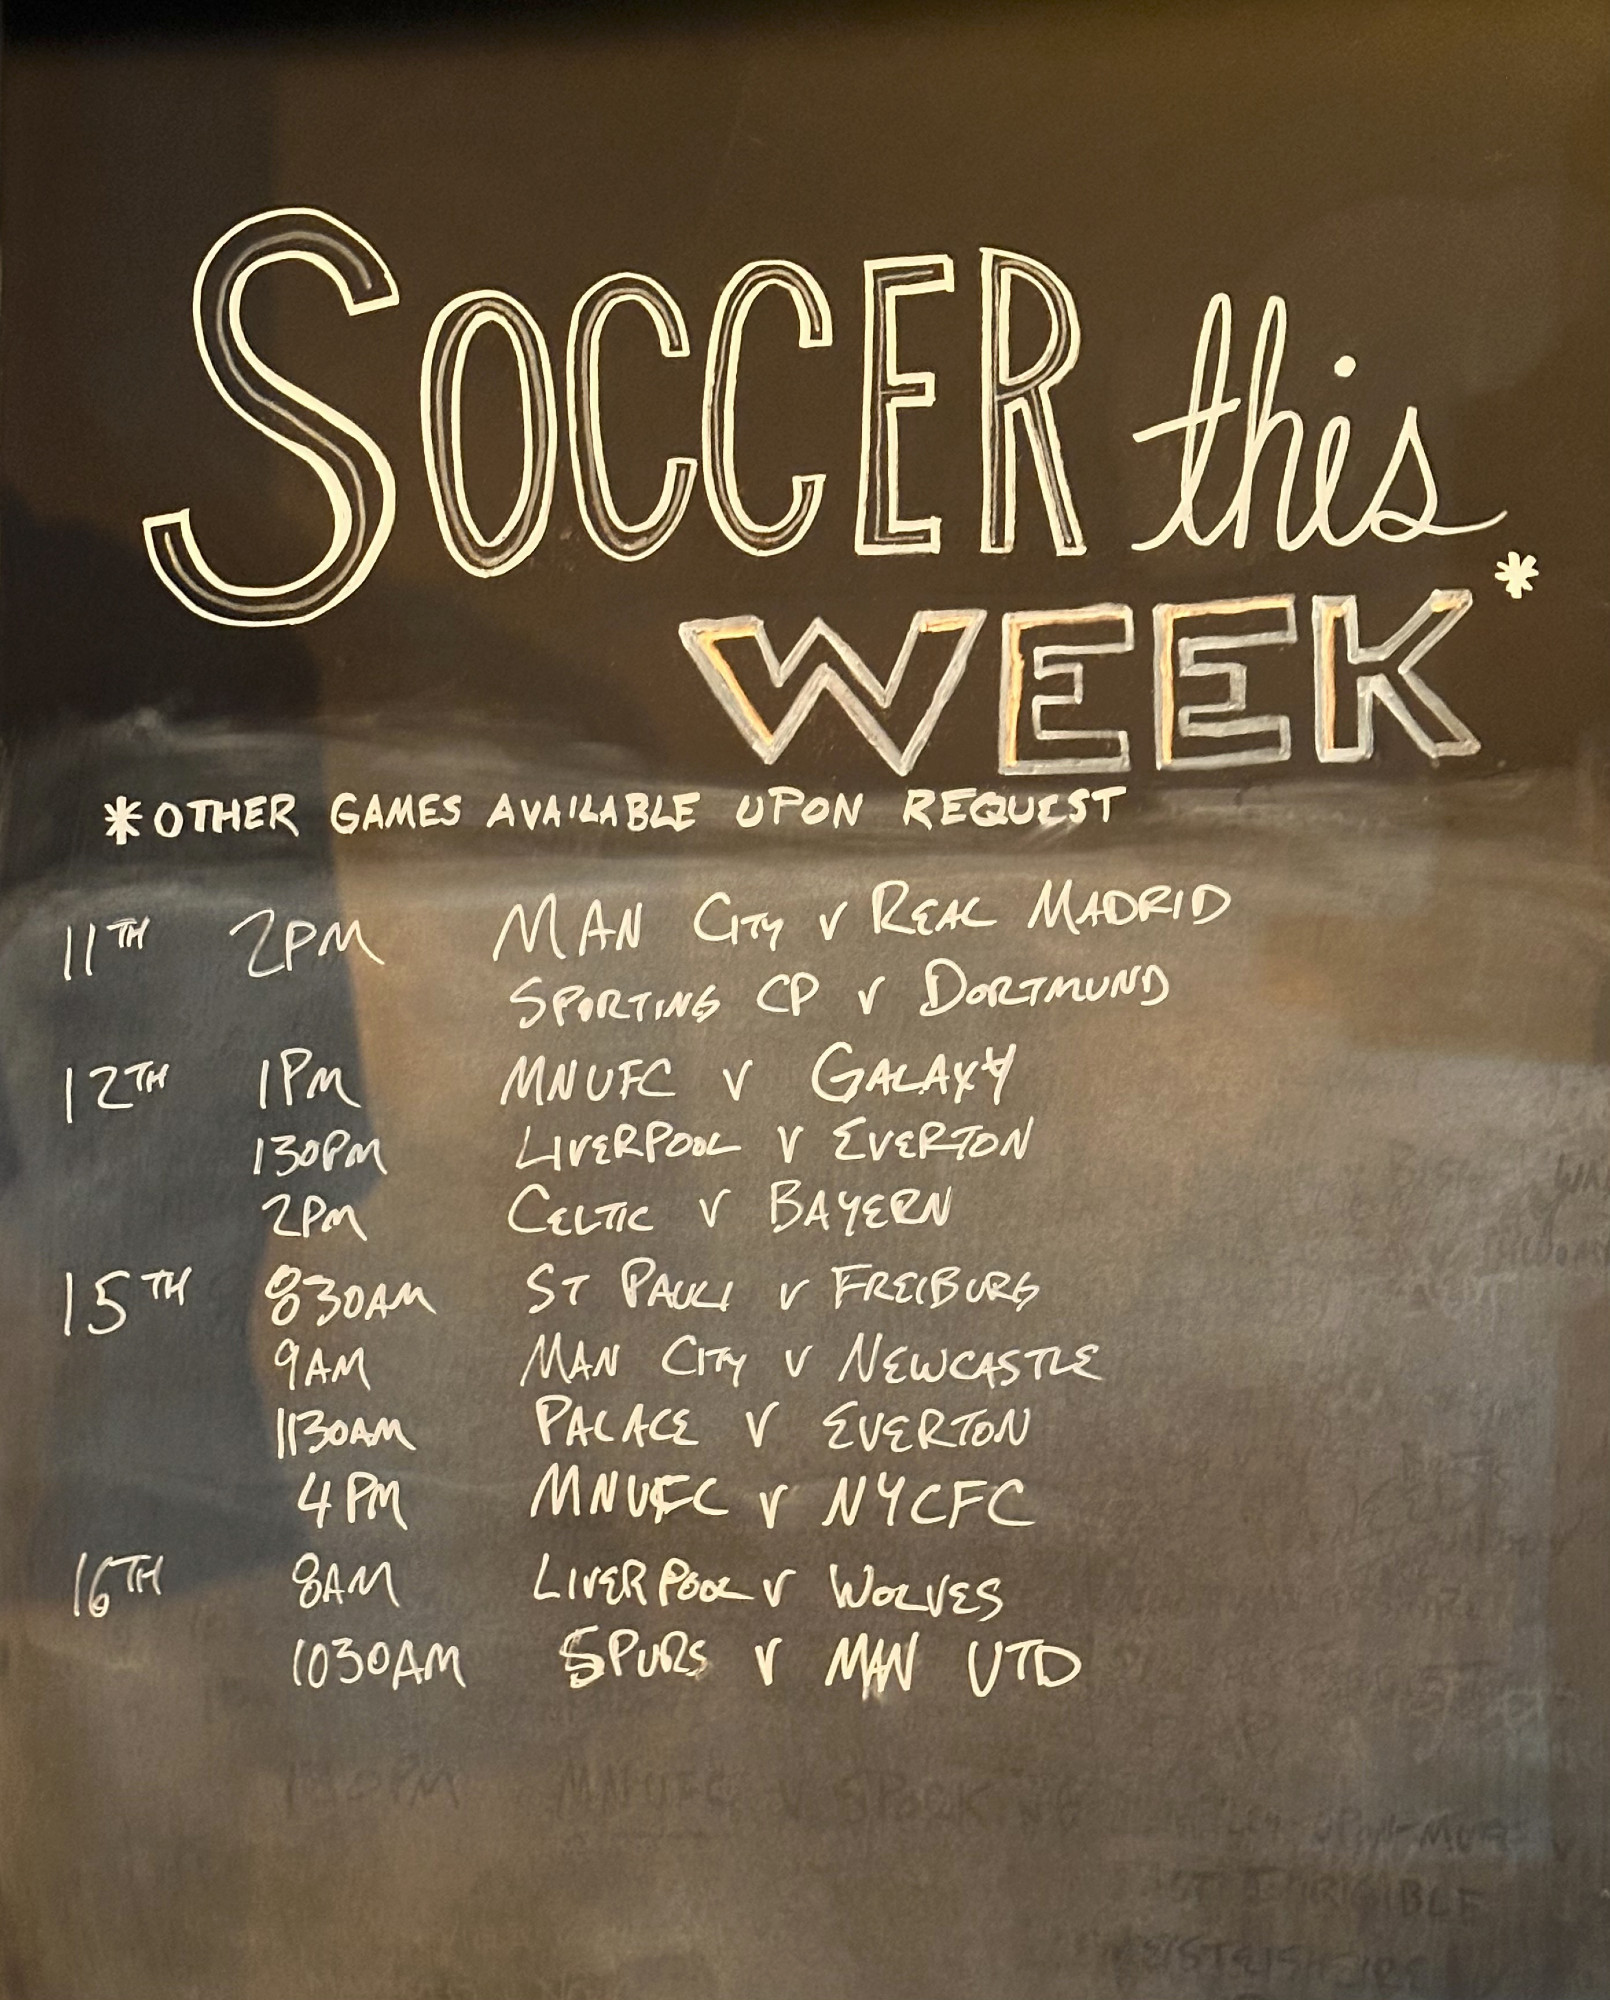 SOCCER this
WEEK*
*OTHER GAMES AVAILABLE UPON REQUEST
11TH 2PM MAN CITY V REAL MADRID
SPORTING CP V DORTMUND
12TH 1PM MNUFC V GALAXY
130PM LIVERPOOL V EVERTON
2PM CELTIC V BAYERN
15TH 830AM ST PAULI V FREIBURG
9AM MAN CITY V NEWCASTLE
1130AM PALACE V EVERTON
4PM MNUFC V NYCFC
16TH 8AM LIVERPOOL V WOLVES
1030AM SPURS V MAN UTD